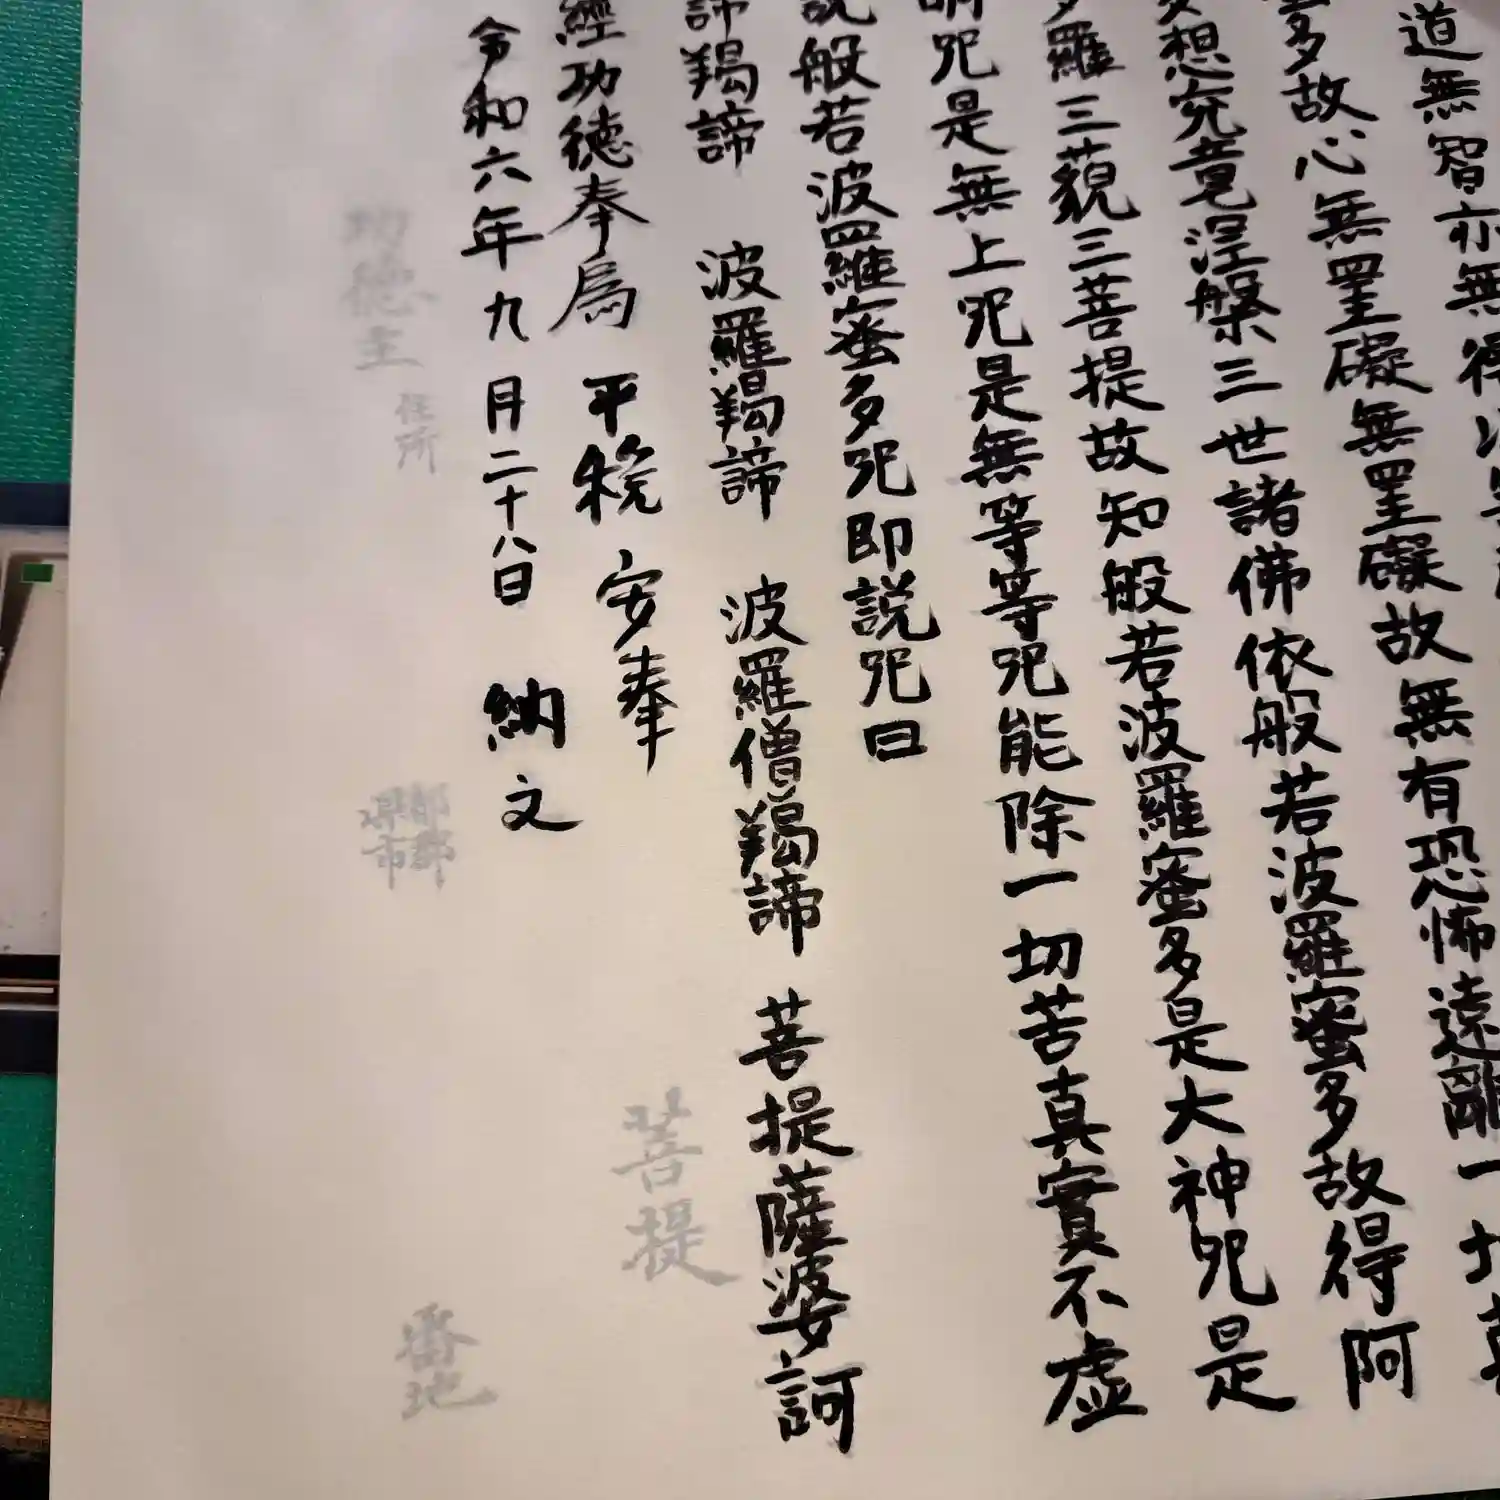 道無智亦無得以無
多故心無罣礙無罣礙故無有恐怖遠離一
想究竟涅槃三世諸佛依般若波羅蜜多故得阿
羅三藐三菩提故知般若波羅蜜多是大神咒是
明咒是無上咒是無等等咒能除一切苦真實不虛
説般若波羅蜜多咒即説咒曰
諦羯諦 波羅羯諦 波羅僧羯諦 菩提薩婆訶
經功徳奉爲 平穏 安奉
菩提
令和六年九月二十八日 納文
功徳主 住所
都郡
県市
番地